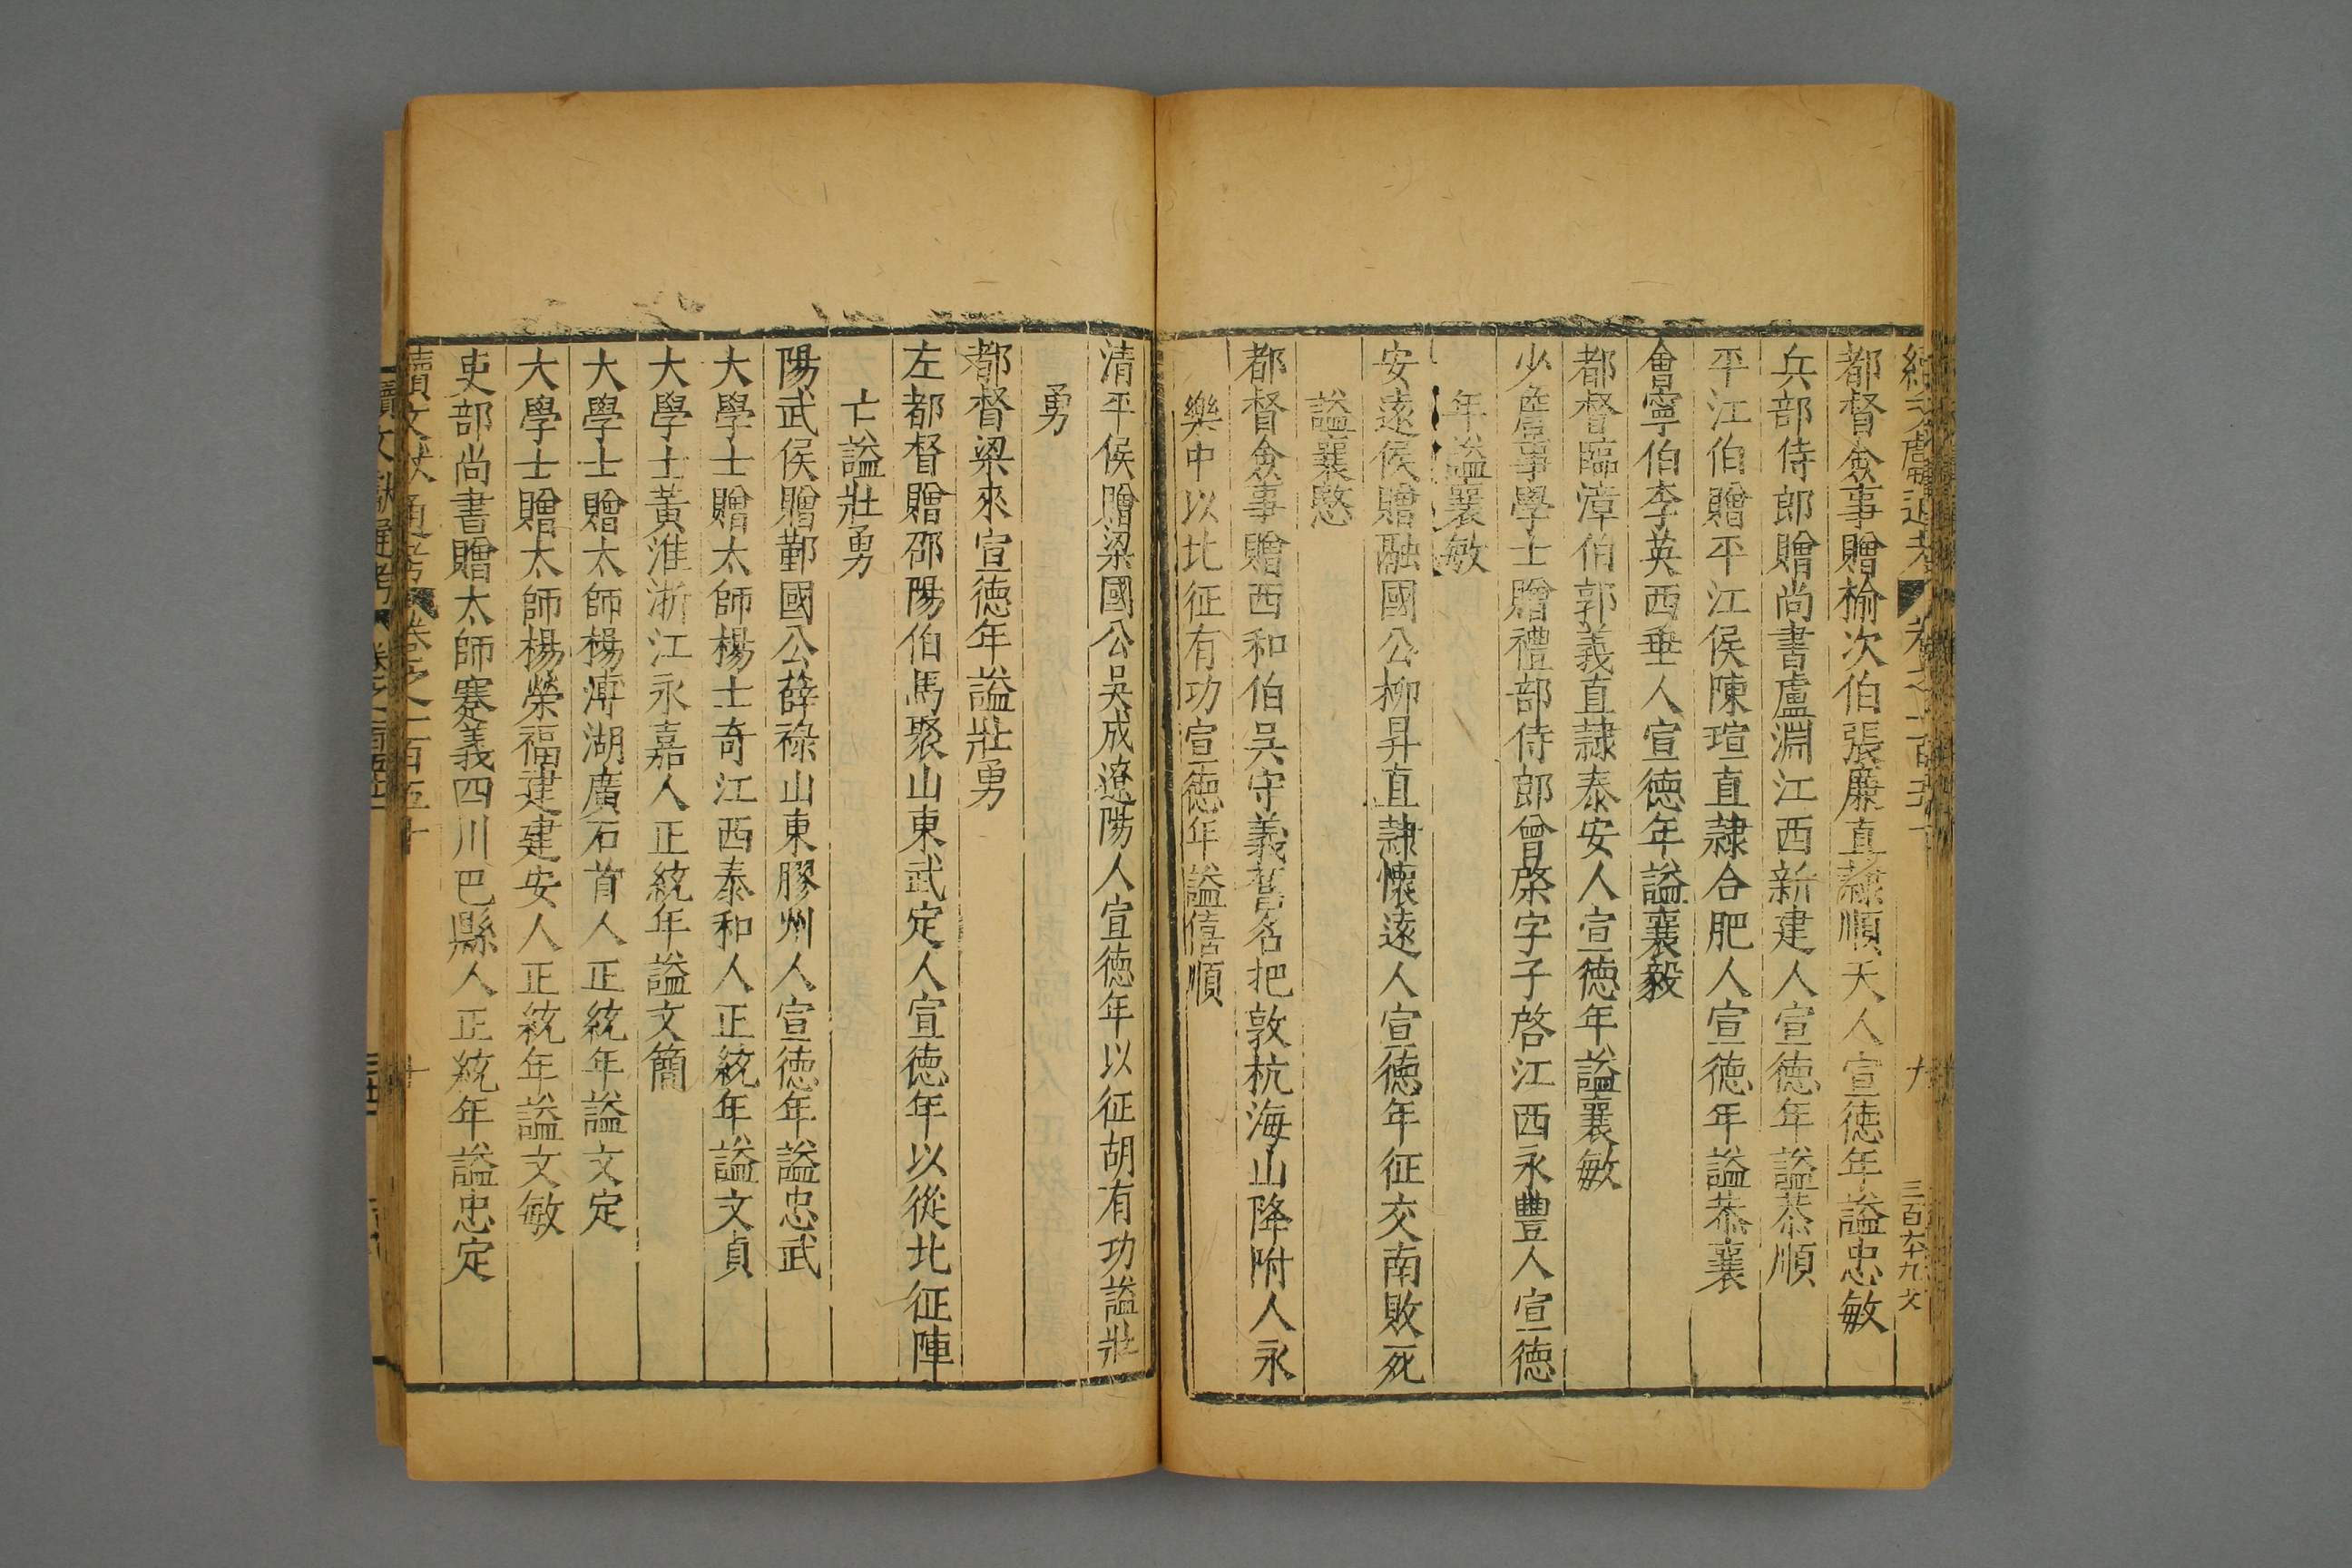 都督僉事贈榆次伯張廉直隸順天人宣德年謚忠敏
兵部侍郎贈尚書盧淵江西新建人宣德年謚恭順
平江伯贈平江侯陳瑄直隸合肥人宣德年謚恭襄
會寧伯李英西番人宣德年謚襄毅
都督臨漳伯郭義直隸泰安人宣德年謚襄敏
少詹事學士贈禮部侍郎曾棨字子啓江西永豐人宣德
年謚襄敏
安遠侯贈融國公柳昇直隸懷遠人宣德年征交南敗死
謚襄愍
都督僉事贈西和伯吳守義舊名把敦杭海山降附人永
樂中以北征有功宣德年謚僖順
清平侯贈梁國公吳成遼陽人宣德年以征胡有功謚壯
勇
都督梁來宣德年謚壯勇
左都督贈邵陽伯馬聚山東武定人宣德年以從北征陣
亡謚壯勇
陽武侯贈鄞國公薛祿山東膠州人宣德年謚忠武
大學士贈太師楊士奇江西泰和人正統年謚文貞
大學士黃淮浙江永嘉人正統年謚文簡
大學士贈太師楊溥湖廣石首人正統年謚文定
大學士贈太師楊榮福建建安人正統年謚文敏
吏部尚書贈太師蹇義四川巴縣人正統年謚忠定
續文獻通考 卷之一百五十